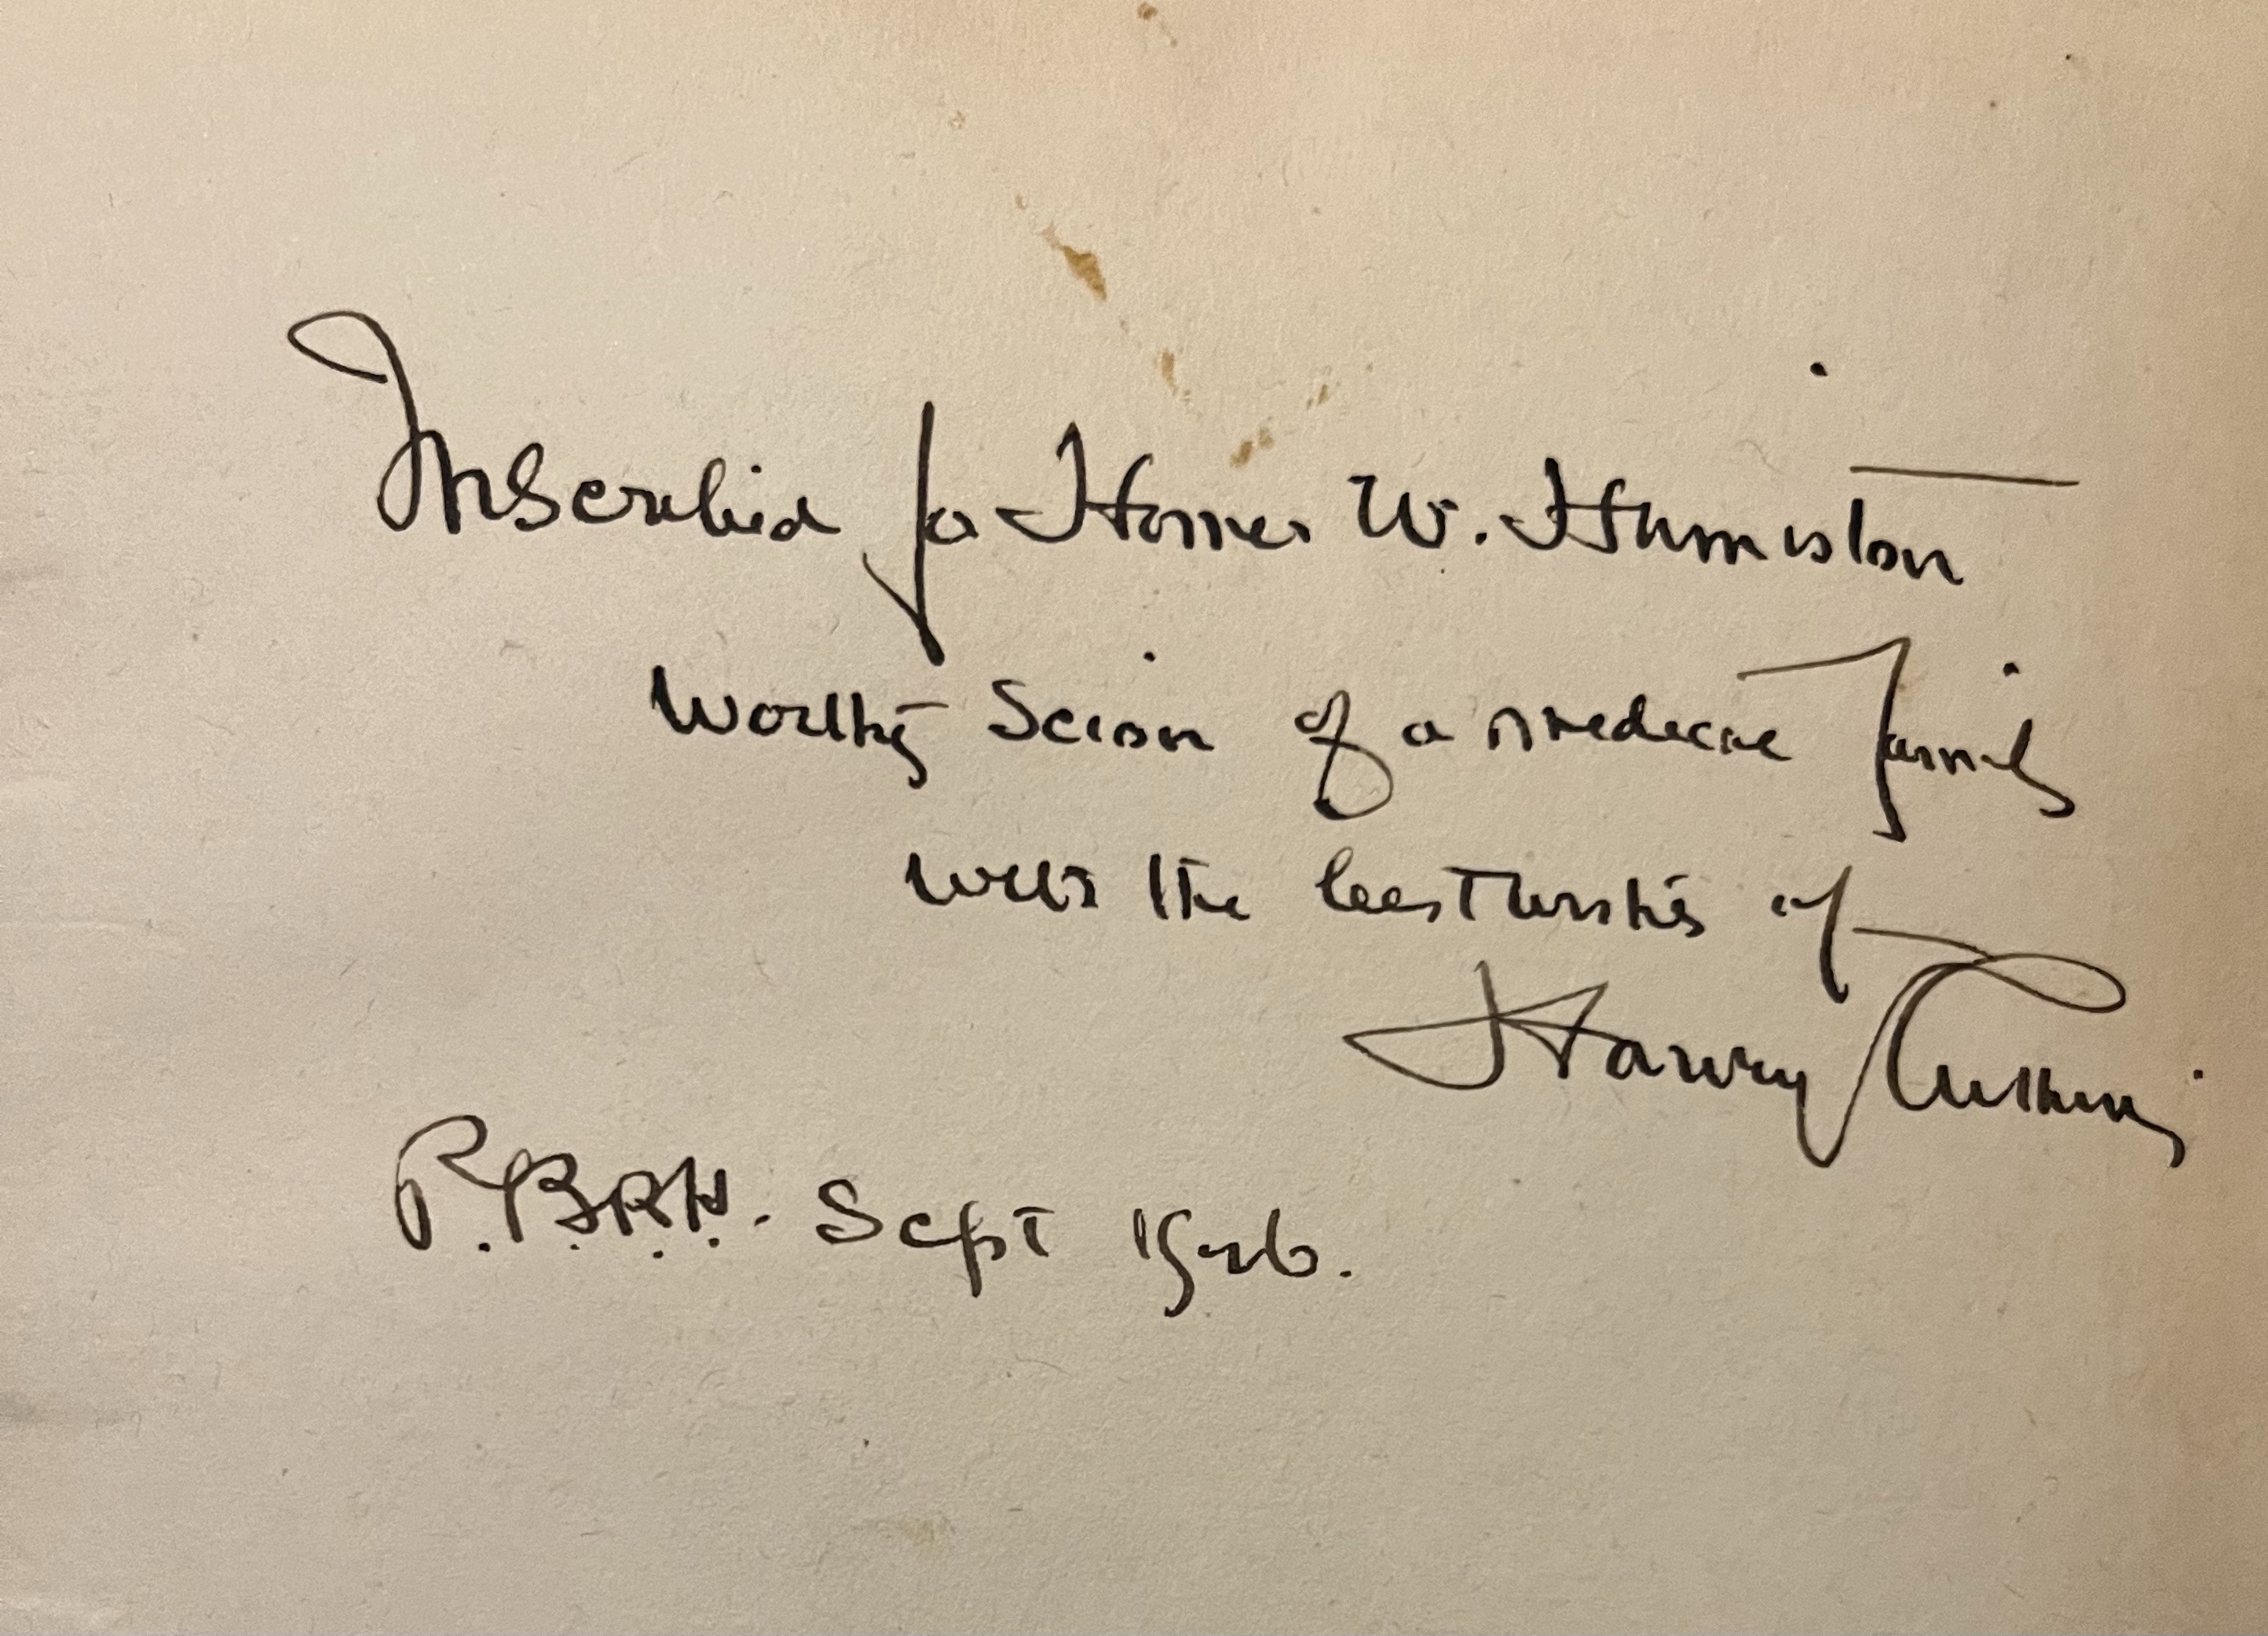 Inscribed for Homer W. Humiston
Worthy Scion of a medical family
with the best wishes of
Harvey Cushing
P.B.B.H. Sept 1926.